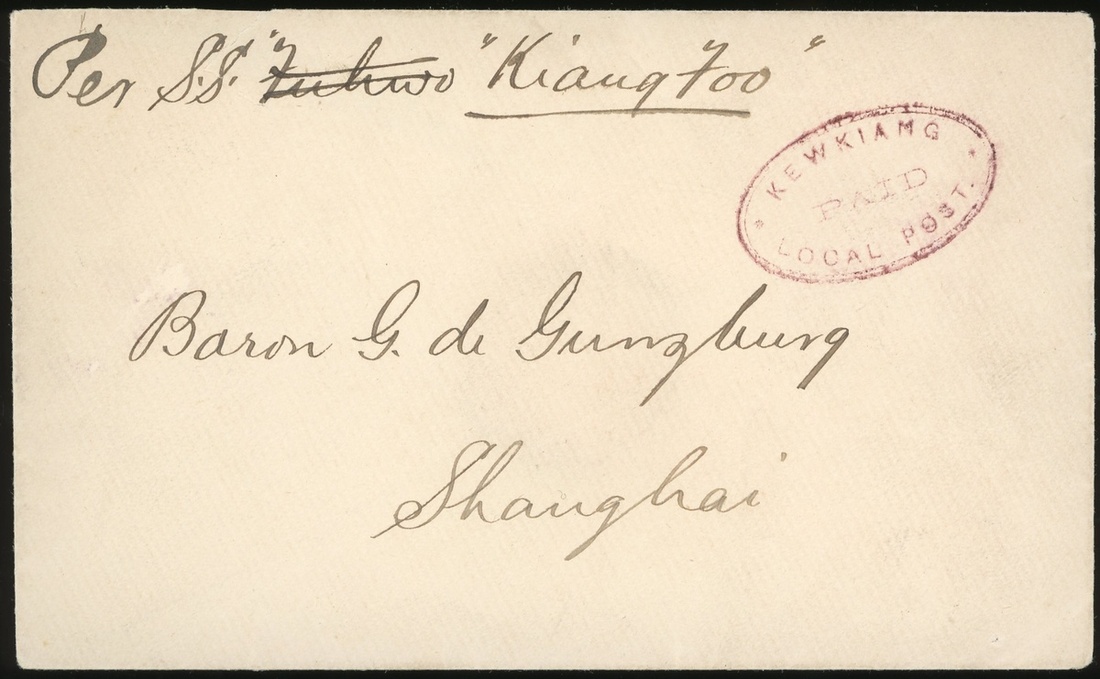 Per S.S. "Fuhwo "Kiang Foo"
KEWKIANG
PAID
LOCAL POST.
Baron G. de Gunzburg
Shanghai